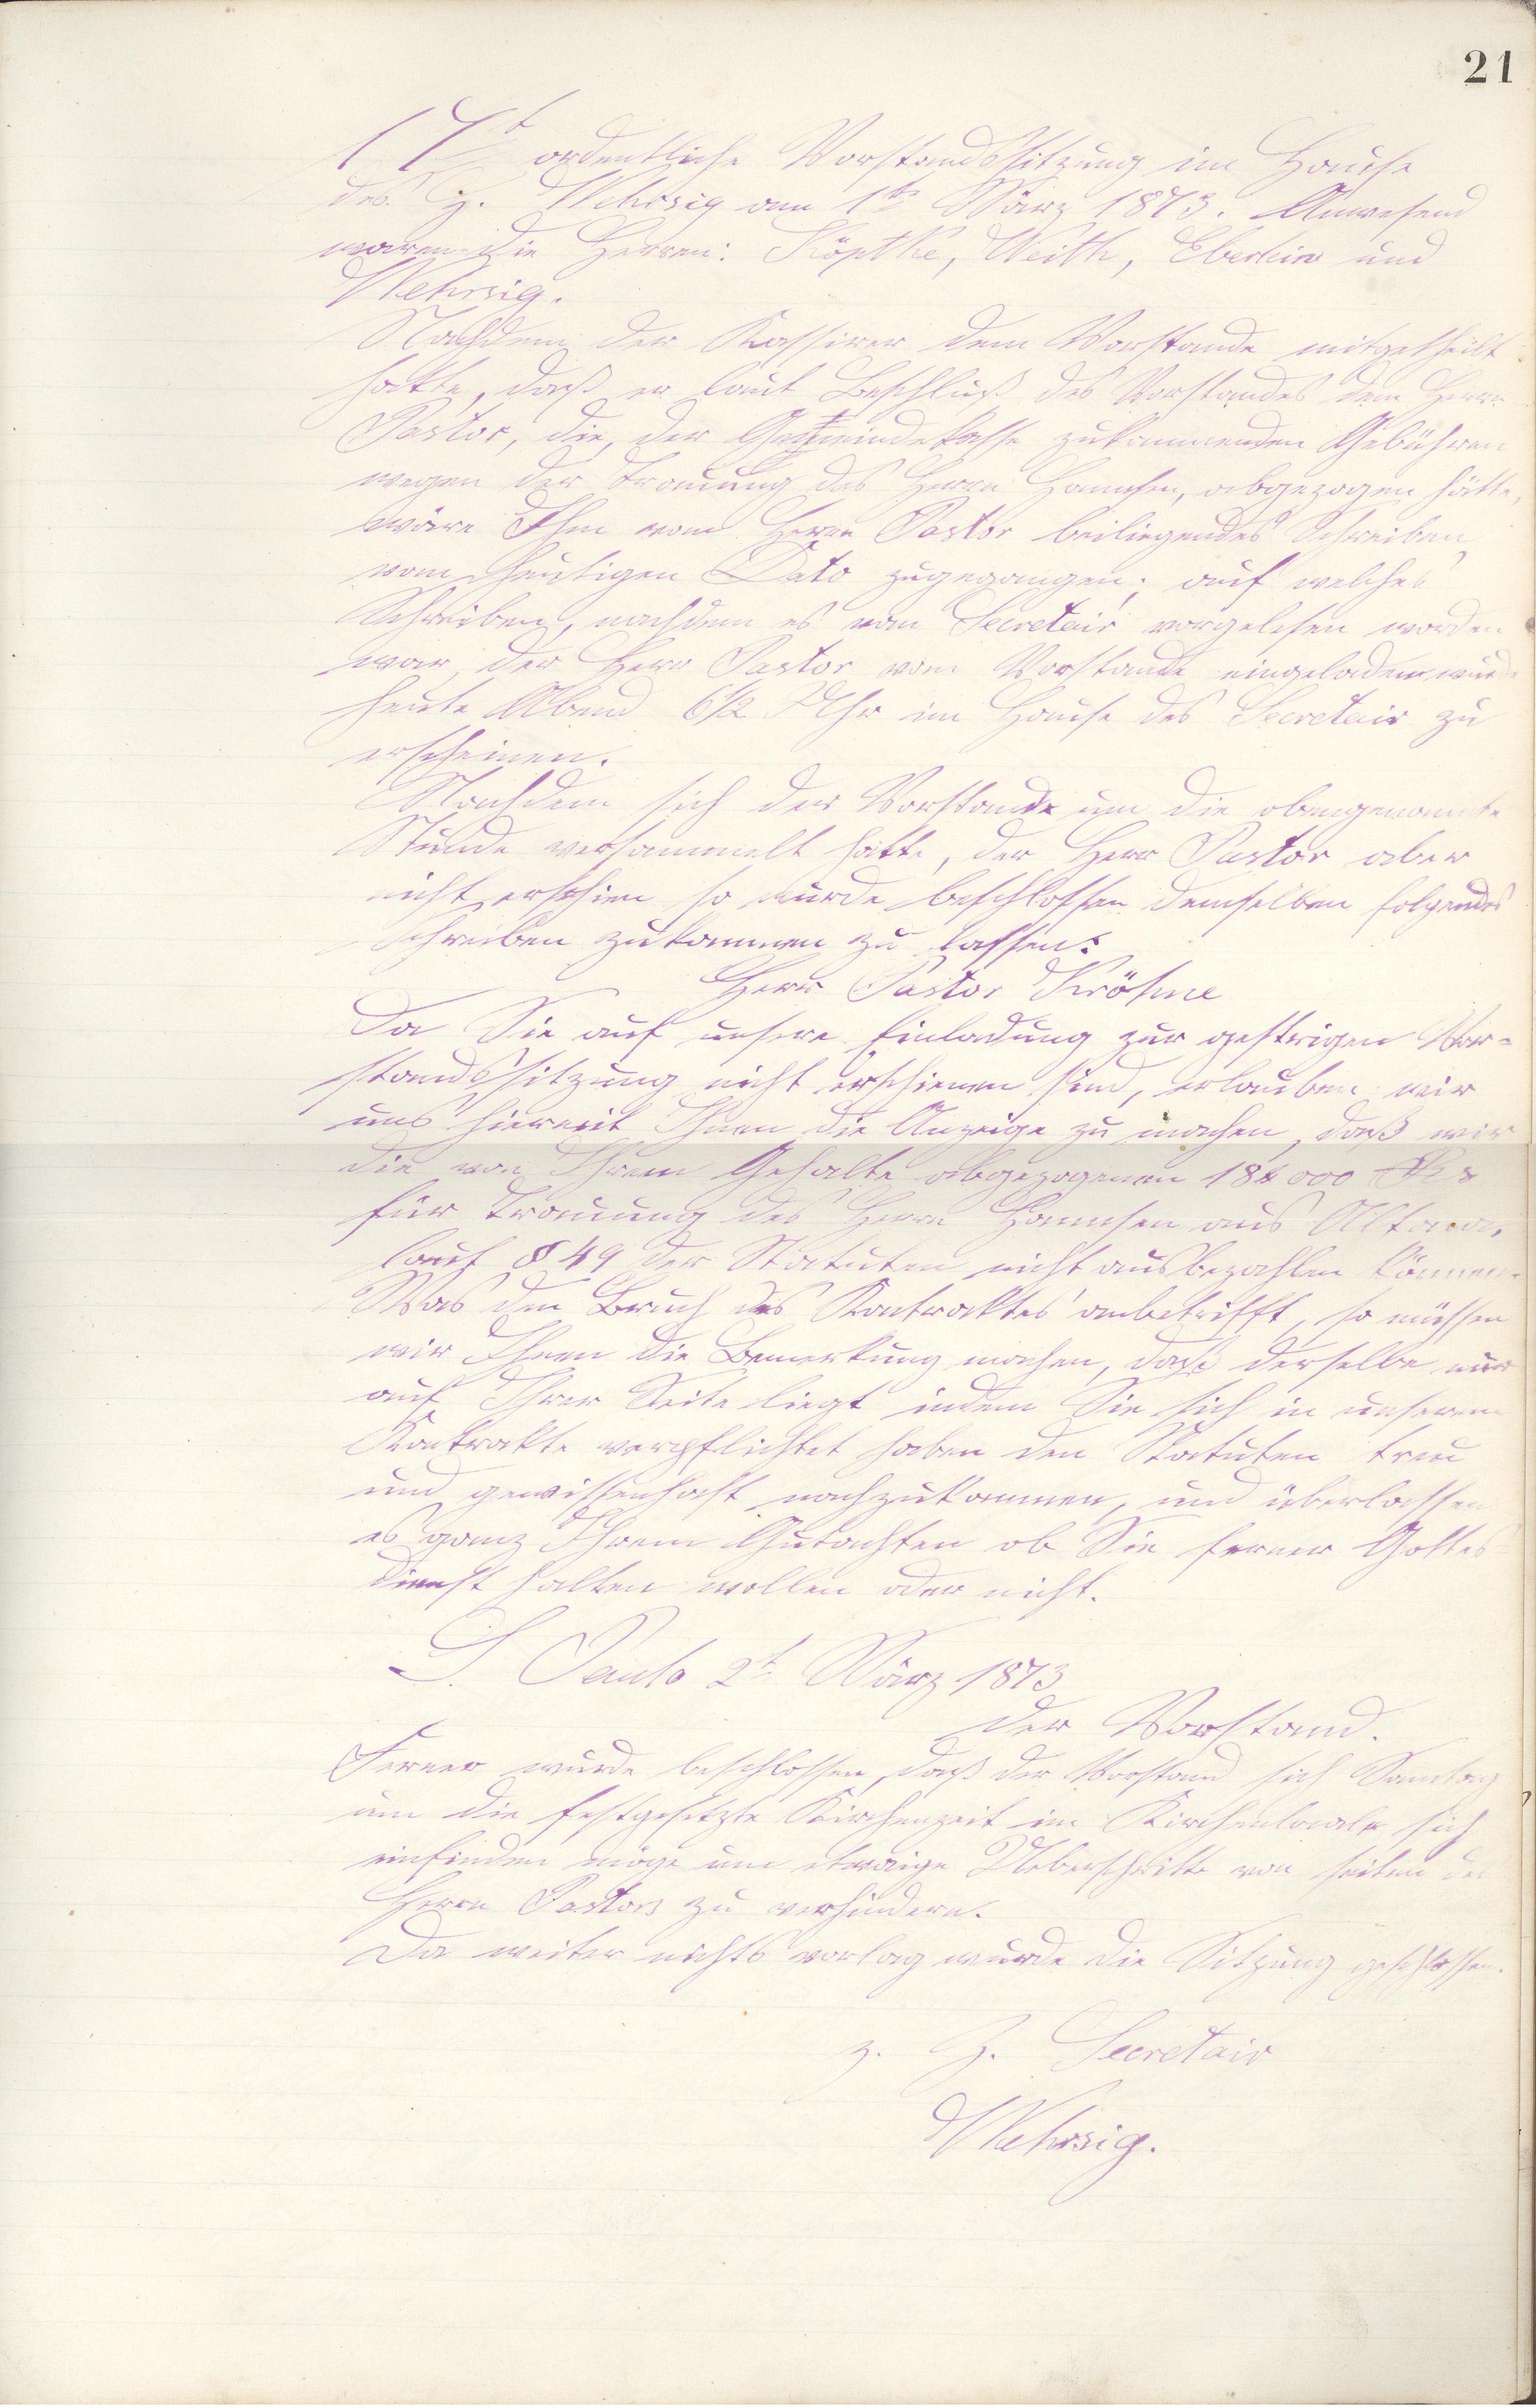 21
17t ordentliche Vorstandssitzung im Hause
des H. Wehrsig am 1ten März 1873. Anwesend
waren die Herren: Köpke, Weith, Eberlein und
Wehrsig.
Nachdem der Kassirer dem Vorstande mitgetheilt
hatte, daß er laut Beschluß des Vorstandes dem Herrn
Pastor, die, der Gemeindekasse zukommenden Gebühren
wegen der Trauung des Herrn Hannsen, abgezogen hätte,
wäre Ihm vom Herrn Pastor beiliegendes Schreiben
vom heutigen Dato zugegangen; auf welches
Schreiben, nachdem es vom Secretair vorgelesen worden
war, der Herr Pastor vom Vorstande eingeladen wurde
heute Abend 6 1/2 Uhr im Hause des Secretair zu
erscheinen.
Nachdem sich der Vorstande um die obengenannte
Stunde versammelt hatte, der Herr Pastor aber
nicht erschien so wurde beschlossen demselben folgendes
Schreiben zukommen zu lassen:
Herr Pastor Kröhne
Da Sie auf unsere Einladung zur gestrigen Vor-
standssitzung nicht erschienen sind, erlauben wir
uns hiermit Ihnen die Anzeige zu machen, daß wir
die von Ihrem Gehalte abgezogenen 18$000 Rs
für Trauung des Herrn Hannsen aus Altona,
laut § 49 der Statuten nicht ausbezahlen können.
Was den Bruch des Kontraktes anbetrifft, so müssen
wir Ihnen die Bemerkung machen, daß derselbe nur
auf Ihrer Seite liegt indem Sie sich in unserem
Kontrakte verpflichtet haben den Statuten treu
und gewissenhaft nachzukommen, und überlassen
es ganz Ihrem Gutachten ob Sie ferner Gottes
dienst halten wollen oder nicht.
S. Paulo 2t März 1873
Der Vorstand.
Ferner wurde beschlossen, daß der Vorstand sich Sonntag
um die festgesetzte Kirchenzeit im Kirchenlocale sich
einfinden möge um etwaige Ueberschritte von seiten des
Herrn Pastors zu verhindern.
Da weiter nichts vorlag wurde die Sitzung geschlossen.
z. Z. Secretair
Wehrsig.